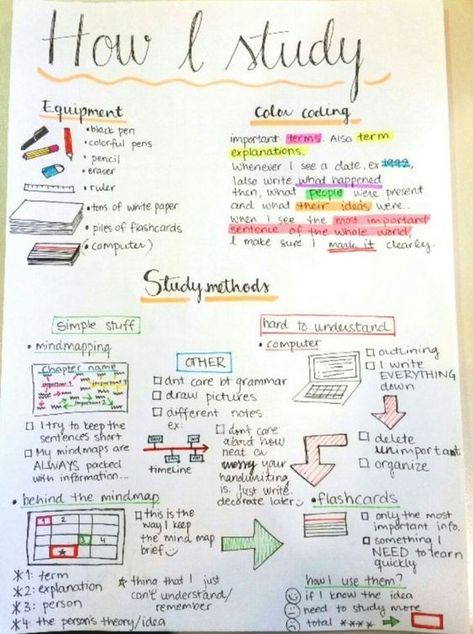 How I study
Equipment
• black pen
• colorful pens
• pencil
• eraser
• ruler
• tons of white paper
• piles of flashcards
(• computer)
Color coding
important terms. Also term
explanations.
Whenever I see a date, ex 1992,
I also write what happened
then, what people were present
and what their ideas were.
When I see the most important
sentence of the whole world,
I make sure I mark it clearly.
Study methods
simple stuff
• mindmapping
Chapter name
important 1
important 2
I try to keep the
sentences short
My mindmaps are
ALWAYS packed
with information...
OTHER
dnt care bt grammar
draw pictures
different notes
ex:
timeline
dont care
about how
neat or
messy your
handwriting
is. just write
decorate later
hard to understand
• computer
outlining
I write
EVERYTHING
down
delete
unimportant
organize
• behind the mindmap
1
2
3
4
*
this is the
way I keep
the mind map
brief
*1: term
*2: explanation
*3: person
*4: the person's theory/idea
* thing that I just
can't understand/
remember
• flashcards
only the most
important info.
something I
NEED to learn
quickly
how I use them?
if I know the idea
need to study more
total ****